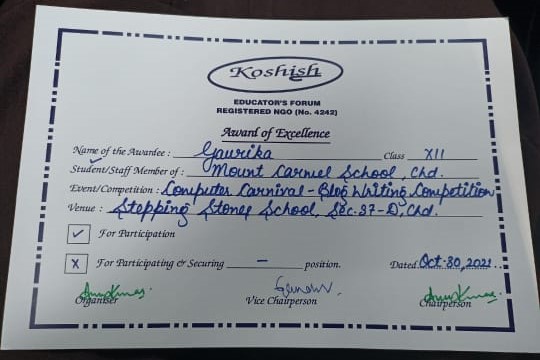 Koshish
EDUCATOR'S FORUM
REGISTERED NGO (No. 4242)
Award of Excellence
Name of the Awardee : Gaurika Class XII
Student/Staff Member of : Mount Carmel School, Chd.
Event/Competition : Computer Carnival - Blog Writing Competition
Venue : Stepping Stones School, Sec. 37-D, Chd.
✓ For Participation
X For Participating & Securing - position. Dated Oct. 30, 2021
Organiser Vice Chairperson Chairperson